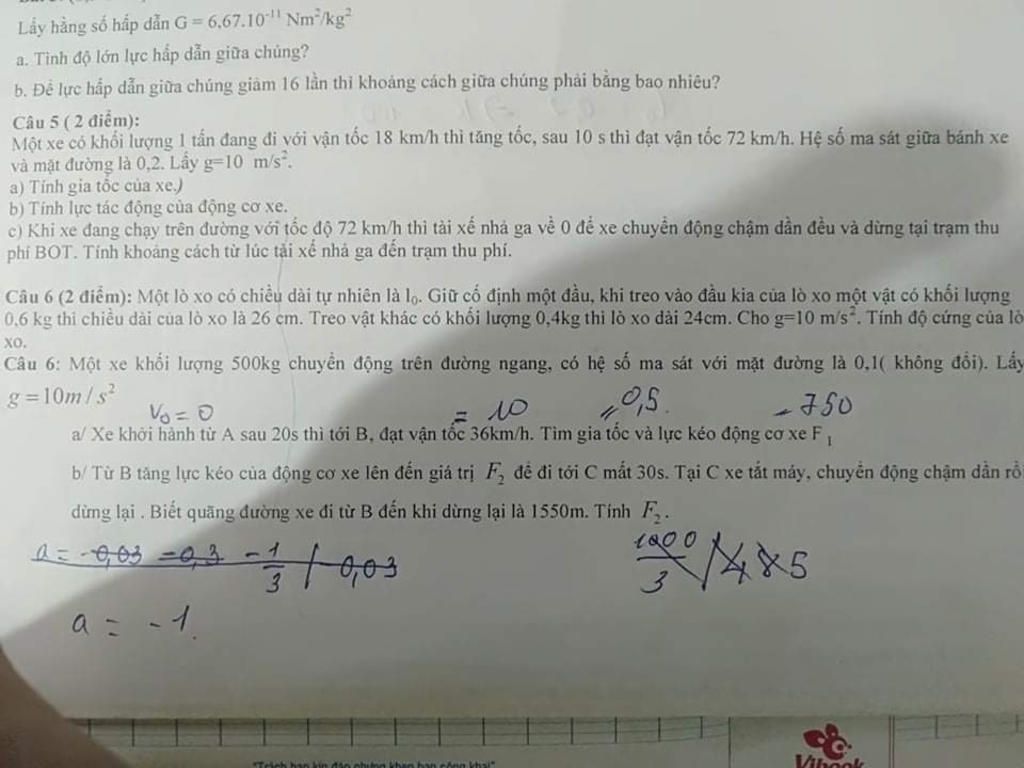 Lấy hằng số hấp dẫn G = 6,67.10⁻¹¹ Nm²/kg²
a. Tình độ lớn lực hấp dẫn giữa chúng?
b. Để lực hấp dẫn giữa chúng giảm 16 lần thì khoảng cách giữa chúng phải bằng bao nhiêu?
Câu 5 ( 2 điểm):
Một xe có khối lượng 1 tấn đang đi với vận tốc 18 km/h thì tăng tốc, sau 10 s thì đạt vận tốc 72 km/h. Hệ số ma sát giữa bánh xe
và mặt đường là 0,2. Lấy g=10 m/s².
a) Tính gia tốc của xe.)
b) Tính lực tác động của động cơ xe.
c) Khi xe đang chạy trên đường với tốc độ 72 km/h thì tài xế nhả ga về 0 để xe chuyển động chậm dần đều và dừng tại trạm thu
phí BOT. Tính khoảng cách từ lúc tài xế nhả ga đến trạm thu phí.
Câu 6 (2 điểm): Một lò xo có chiều dài tự nhiên là l₀. Giữ cố định một đầu, khi treo vào đầu kia của lò xo một vật có khối lượng
0,6 kg thì chiều dài của lò xo là 26 cm. Treo vật khác có khối lượng 0,4kg thì lò xo dài 24cm. Cho g=10 m/s². Tính độ cứng của lò
xo.
Câu 6: Một xe khối lượng 500kg chuyển động trên đường ngang, có hệ số ma sát với mặt đường là 0,1( không đổi). Lấy
g = 10m / s²
V₀ = 0 = 10 = 0,5. = 750
a/ Xe khởi hành từ A sau 20s thì tới B, đạt vận tốc 36km/h. Tìm gia tốc và lực kéo động cơ xe F₁
b/ Từ B tăng lực kéo của động cơ xe lên đến giá trị F₂ để đi tới C mất 30s. Tại C xe tắt máy, chuyển động chậm dần rồ
dừng lại . Biết quãng đường xe đi từ B đến khi dừng lại là 1550m. Tính F₂.
a = -0,03 = 0,3 -1/3 / 0,03 1000/3
a = -1.
"Trách bạn kín đáo nhưng khen bạn công khai"
Vibook